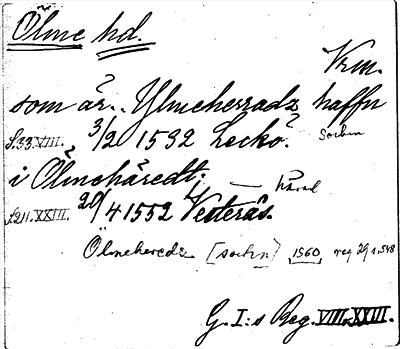 Ölme hd.
Vrm.
som är.. Ylmeherradz haffn
S.33.VIII. 3/2 1532 Leckö. Socken
i Ölmehäredt; — härad
S.211.XXIII. 20/4 1552 Vesterås.
Ölmeherede [socken] 1560 reg 29 s. 548
G. I:s Reg. VIII. XXIII.